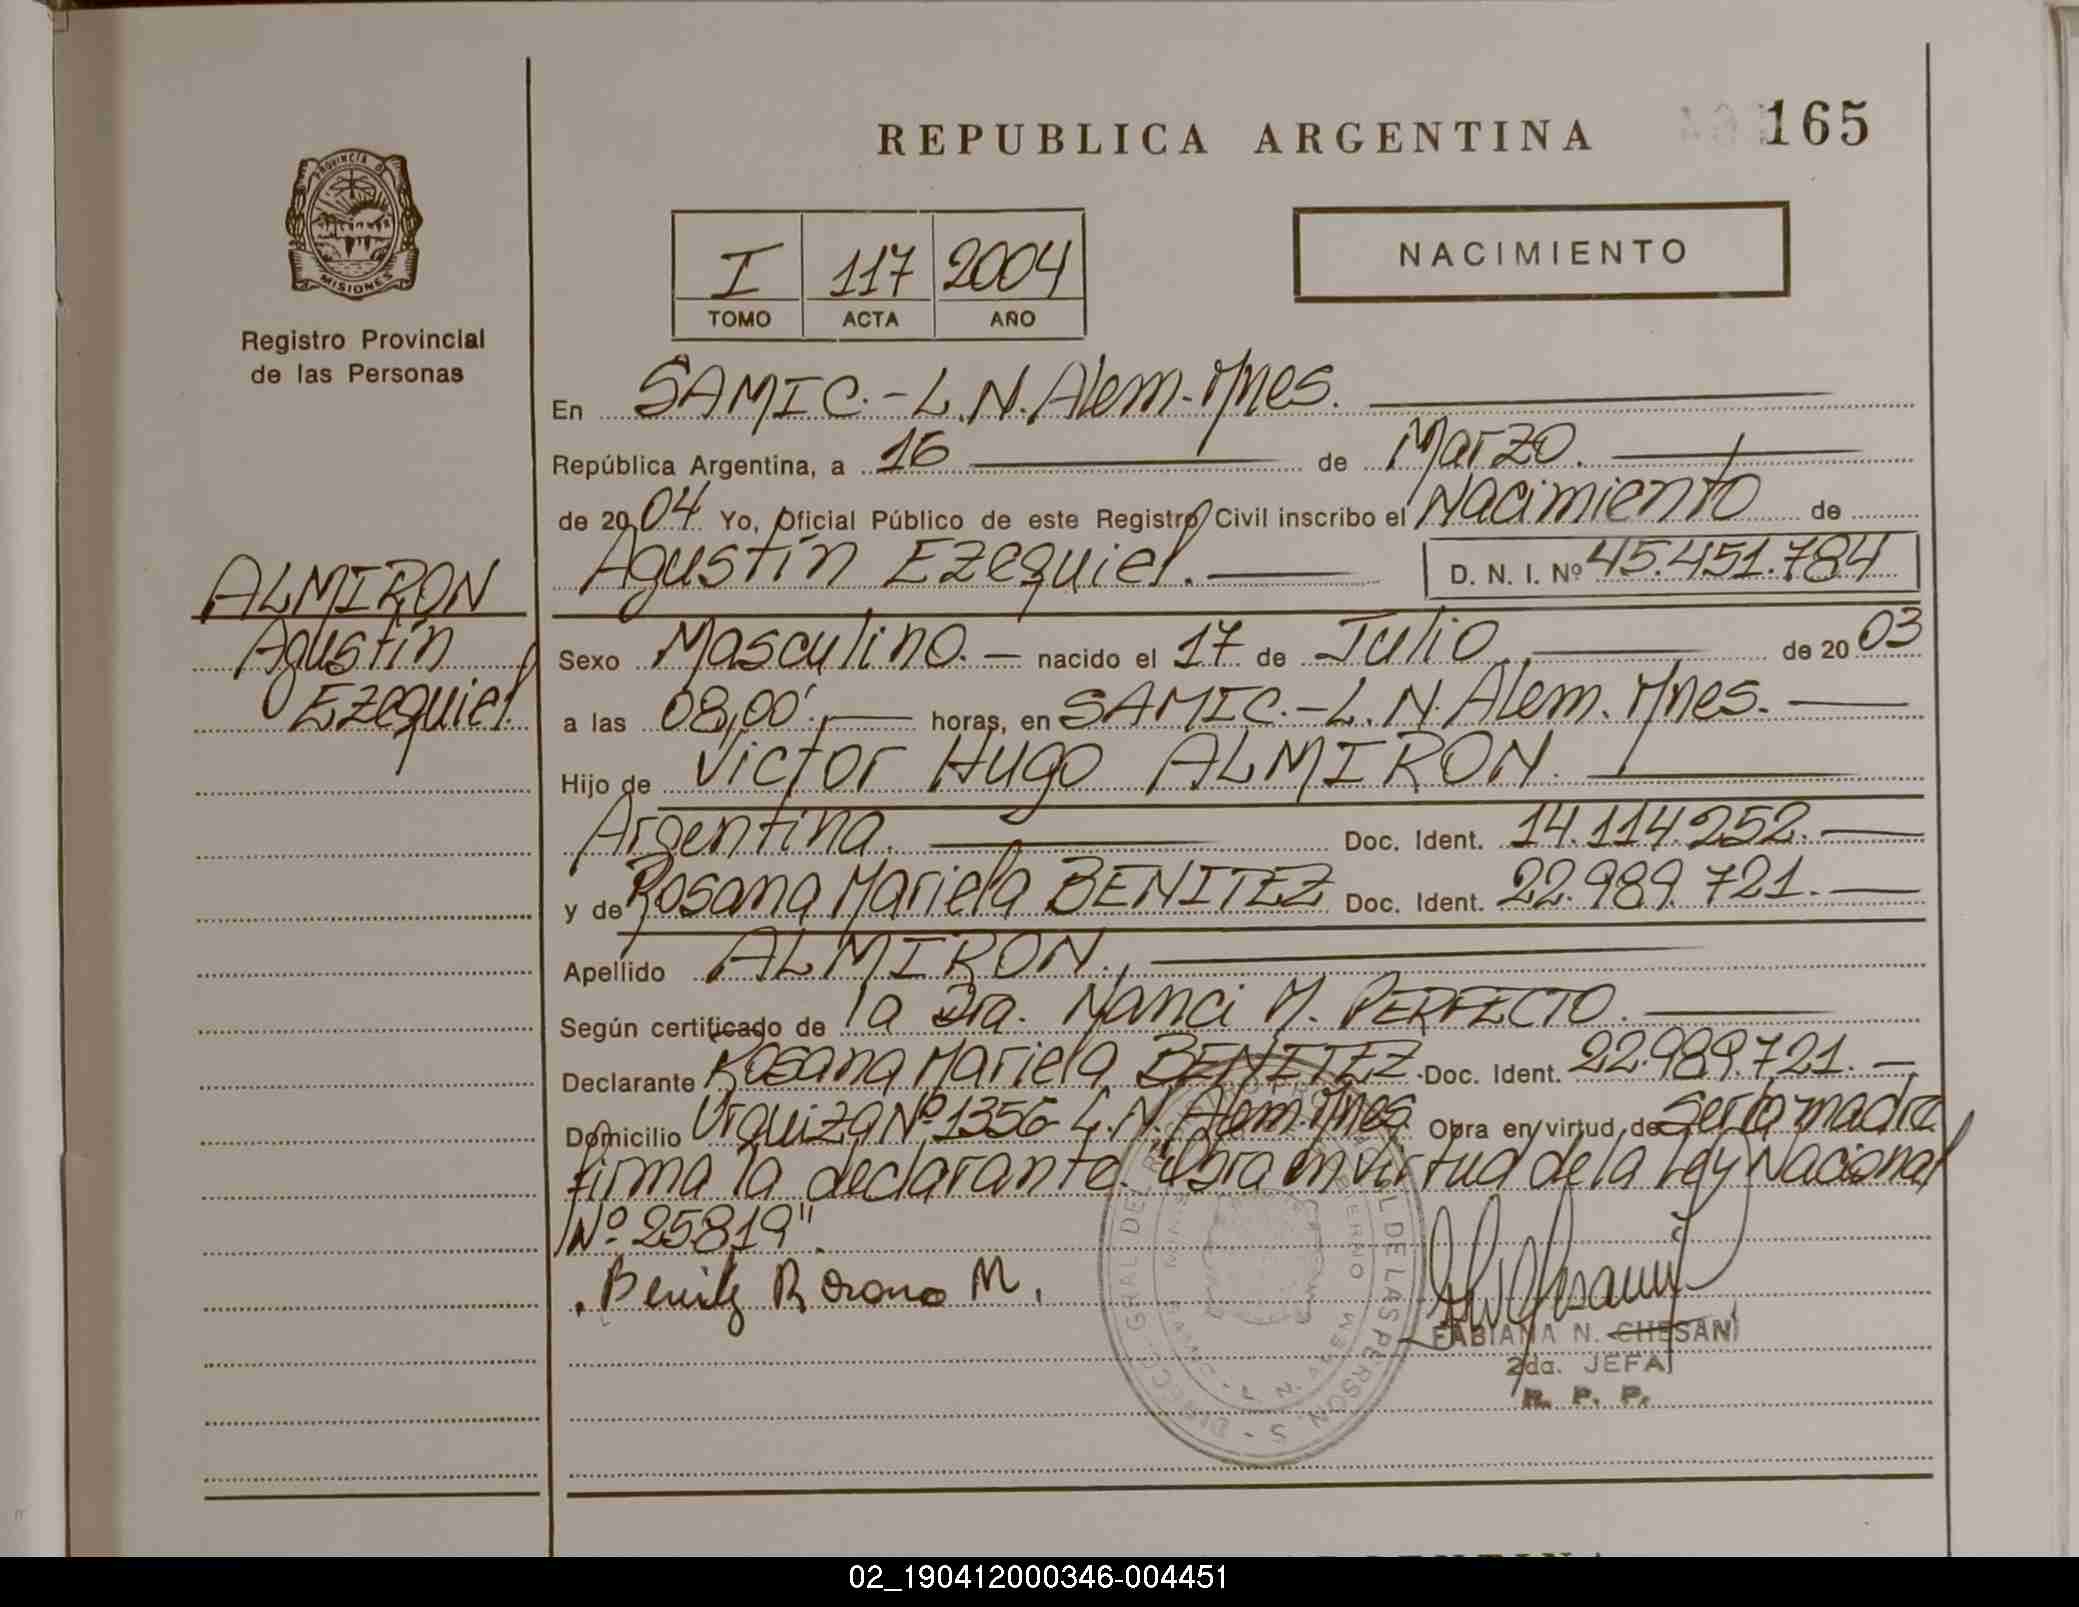 REPUBLICA ARGENTINA
165
PROVINCIA D
MISIONES
Registro Provincial
de las Personas
I 117 2004
TOMO ACTA AÑO
NACIMIENTO
En SAMIC.-L.N.Alem-Mnes.
República Argentina, a 16 de Marzo.
de 2004 Yo, Oficial Público de este Registro Civil inscribo el Nacimiento de
Agustín Ezequiel. D. N. I. Nº 45.451.784
ALMIRON
Agustín
Ezequiel.
Sexo Masculino.- nacido el 17 de Julio de 2003
a las 08,00'. horas, en SAMIC.-L.N.Alem.Mnes.-
Hijo de Victor Hugo ALMIRON.
Argentina. Doc. Ident. 14.114.252.-
y de Rosana Mariela BENITEZ Doc. Ident. 22.989.721.-
Apellido ALMIRON.
Según certificado de la Dra. Nanci M. PERFECTO.
Declarante Rosana Mariela BENITEZ Doc. Ident. 22.989.721.-
Domicilio Urquiza Nº 1356-L.N.Alem.Mnes. Obra en virtud de ser la madre
firma la declarante. "Obra en virtud de la Ley Nacional
Nº 25819".
Benitez Rosana M.
FABIANA N. CHESANI
2da. JEFA
R. P. P.
02_190412000346-004451